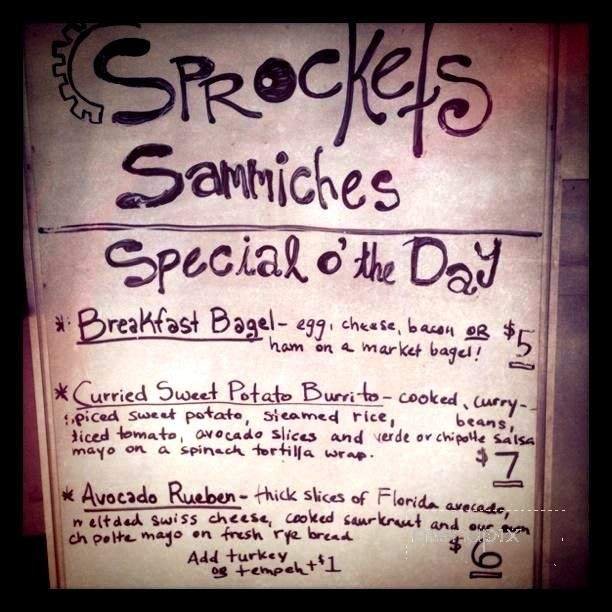 Sprockets
Sammiches
Special o' the Day
* Breakfast Bagel - egg, cheese, bacon OR $5
ham on a market bagel!
* Curried Sweet Potato Burrito - cooked, curry-
spiced sweet potato, steamed rice, beans,
diced tomato, avocado slices and verde or chipotle salsa
mayo on a spinach tortilla wrap. $7
* Avocado Rueben - thick slices of Florida avocado,
meltded swiss cheese, cooked saurkraut and our own
ch polte mayo on fresh rye bread $6
Add turkey
OR tempeh + $1